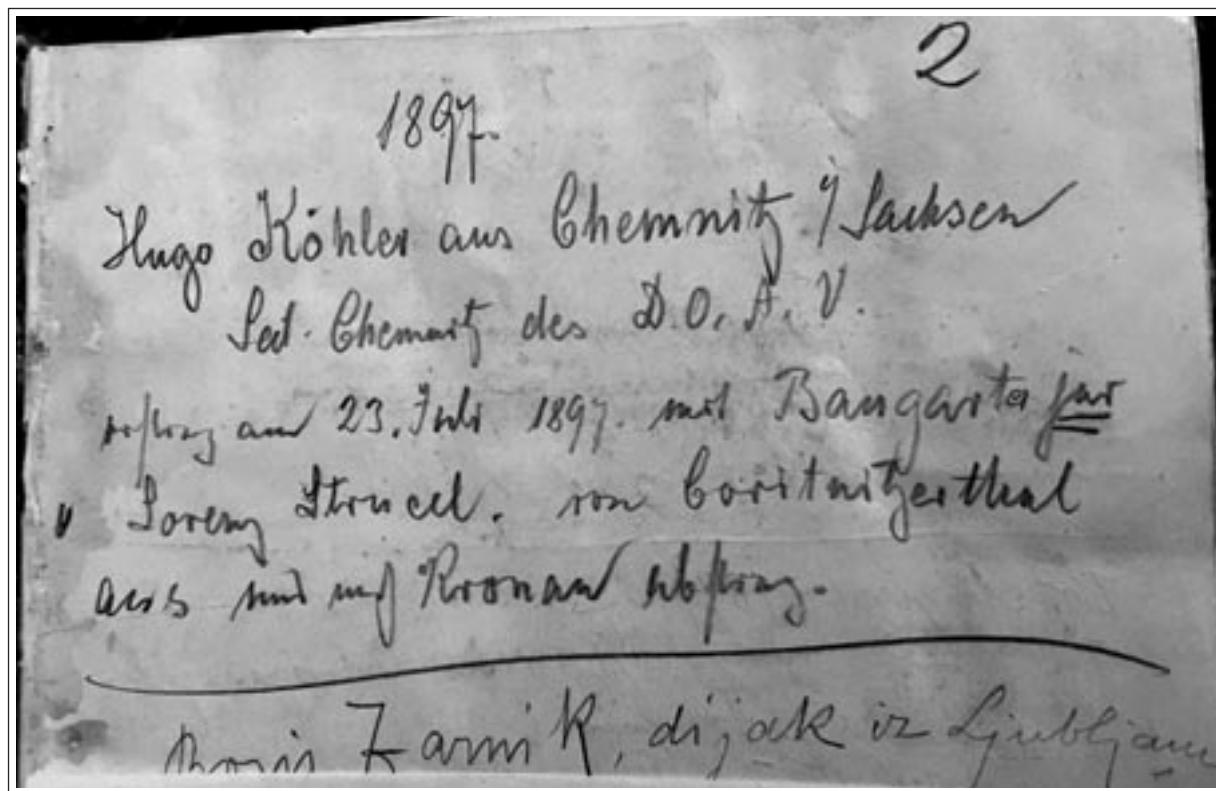 2
1897.
Hugo Köhler aus Chemnitz i/Sachsen
Sect. Chemnitz des D.O.A.V.
erstieg am 23. Juli 1897. mit Baumgarta jun
u Lorenz Strucel. von Coritnitzerthal
aus und nach Kronau abstieg.
Boris Zarnik, dijak iz Ljubljane